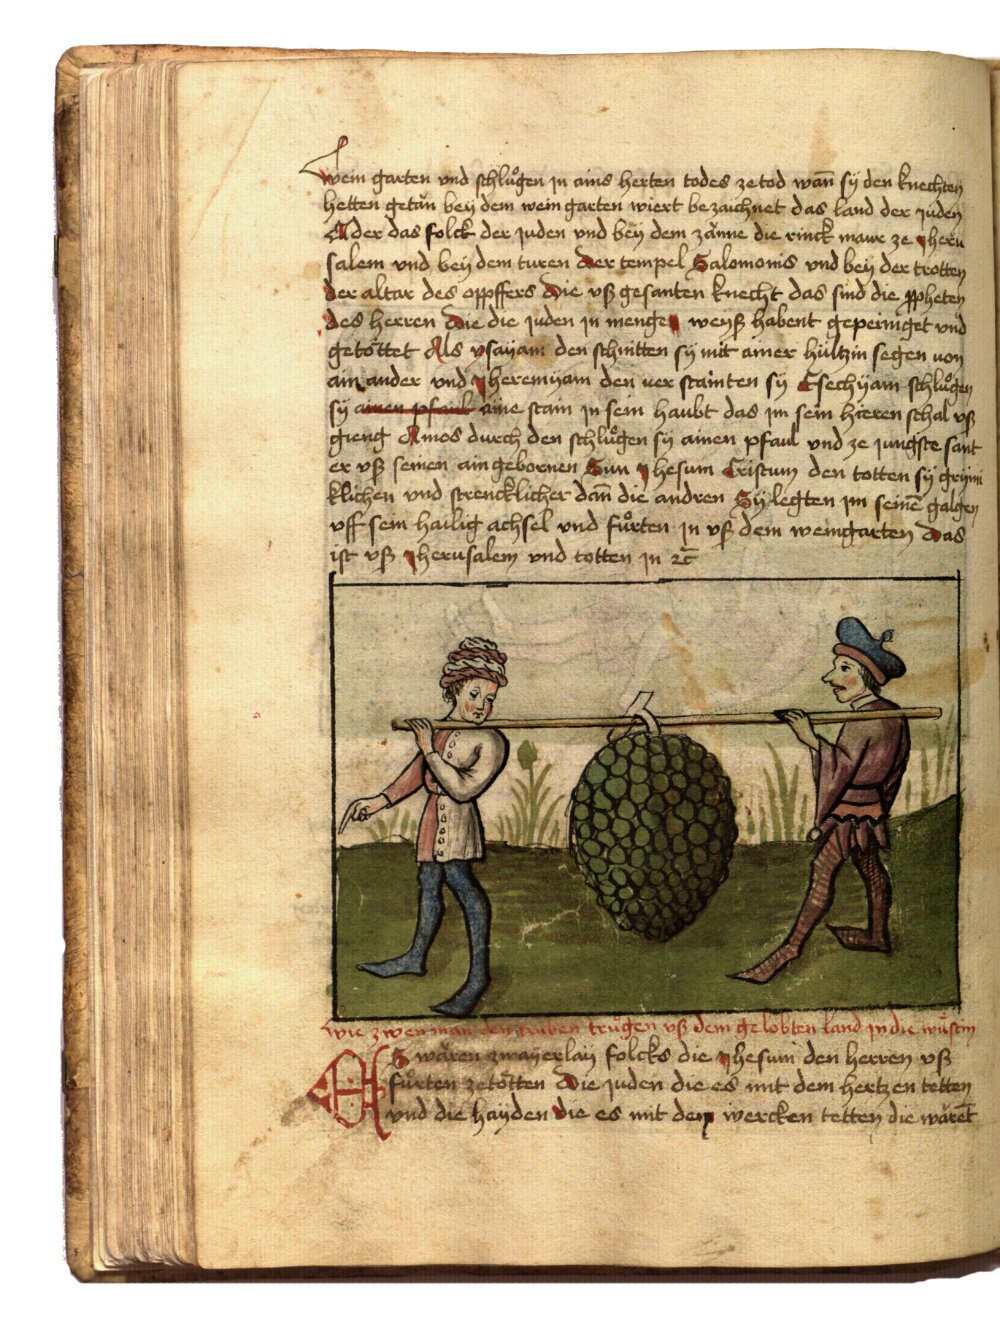 wein garten vnd schlůgen jn ains herten todes ze tod wañ sÿ den knechten
hetten getän beÿ dem wein garten wiert bezaichnet das land der juden
Ader das folck der juden vnd beÿ dem zänne die rinck maur ze jheru
salem vnd beÿ dem turen der tempel Salomonis vnd beÿ der trotten
der altar des oppffers Die vß gesanten knecht das sind die ppheten
des herren Die die juden jn menger weÿß habent gepeiniget vnd
getöttet Als ysaÿam den schnitten sÿ mit ainer hültzin segen von
ain ander vnd jheremÿam den ver stainten sÿ Esechÿam schlůgen
sÿ ainen pfaul aine stain jn sein haubt das jm sein hieren schal vß
gieng Amos durch den schlůgen sÿ ainen pfaul vnd ze jungste sant
er vß seinen aingebornen Sun jhesum Cristum den totten sÿ grÿm
klichen vnd strencklicher dañ die andren Sÿ legten jm seinē galgen
vff sein hailig achsel vnd fůrten jn vß dem weingarten das
ist vß jherusalem vnd totten jn
wie zwen man den truben trůgen vß dem gelobten land jn die wůstin
ES wären zwaÿerlaÿ folcks die jhesum den herren vß
fůrten ze tötten Die juden die es mit dem hertzen tetten
vnd die haÿden die es mit den wercken tetten die wäret